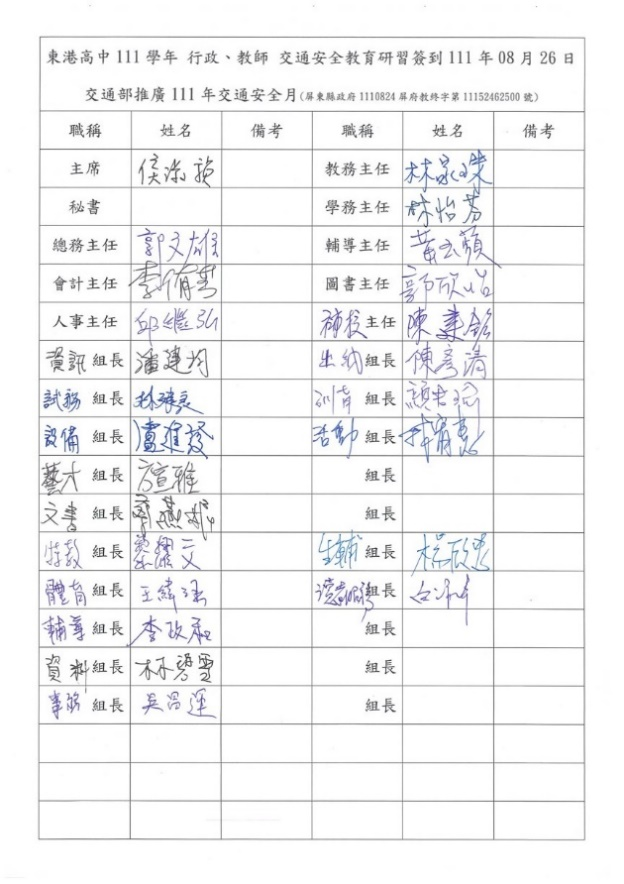 東港高中 111 學年 行政、教師 交通安全教育研習簽到 111 年 08 月 26 日
交通部推廣 111 年交通安全月(屏東縣政府 1110824 屏府教終字第 11152462500 號)
職稱 姓名 備考 職稱 姓名 備考
主席 教務主任
秘書 學務主任 林怡芬
總務主任 郭文雄 輔導主任
會計主任 圖書主任 郭欣怡
人事主任 邱繼弘 主任 陳建銘
資訊組長 潘建均 出納組長 陳彥清
試務組長 組長
設備組長 盧進發 活動組長
藝才組長 方宣雅 組長
文書組長 組長
特教組長 生輔組長 楊欣惠
體育組長 組長
輔導組長 李政君 組長
資料組長 林碧雪 組長
事務組長 吳昌運 組長